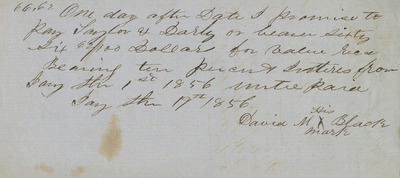 66,62 One day after Date I promise to
Pay Taylor & Darly or bearer sixty
Six 62/100 Dollars for Value Recd
Bearing ten percent Instires from
Jany the 1st 1856 until Paid
Jany the 17th 1856
His
David M X Black
mark